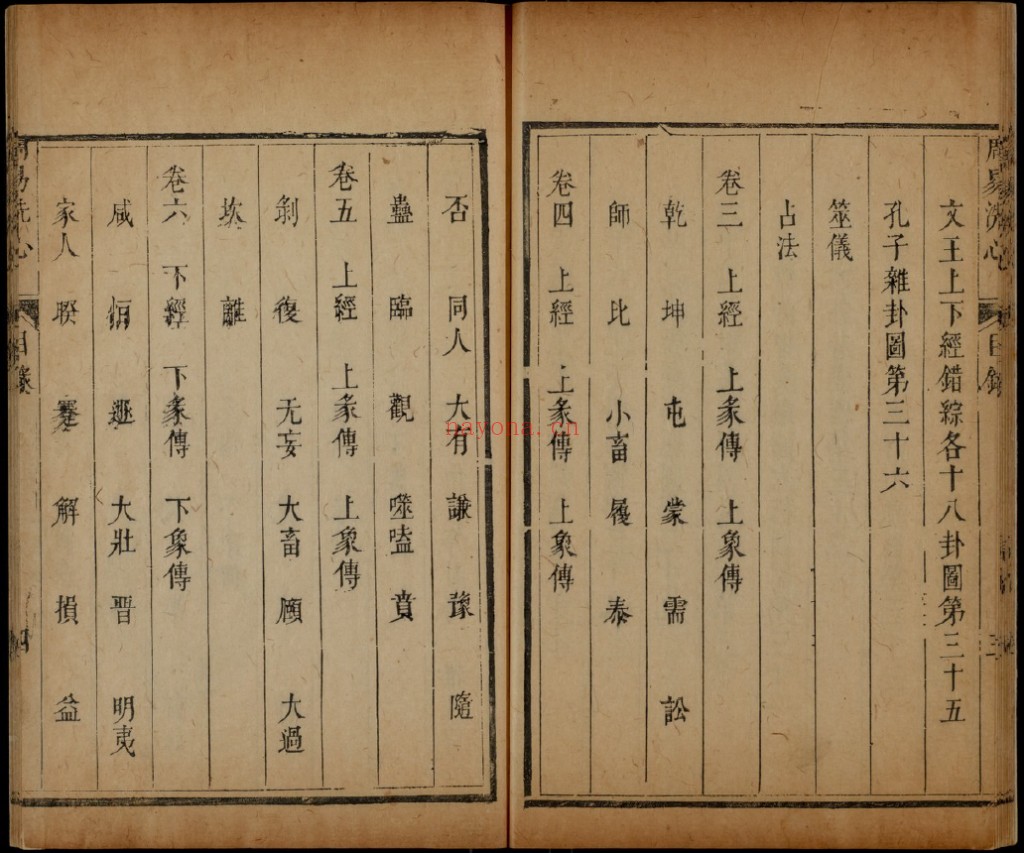 周易洗心 目錄 三
文王上下經錯綜各十八卦圖第三十五
孔子雜卦圖第三十六
筮儀
占法
卷三 上經 上彖傳 上象傳
乾 坤 屯 蒙 需 訟
師 比 小畜 履 泰
卷四 上經 上彖傳 上象傳
否 同人 大有 謙 豫 隨
蠱 臨 觀 噬嗑 賁
卷五 上經 上彖傳 上象傳
剝 復 无妄 大畜 頤 大過
坎 離
卷六 下經 下彖傳 下象傳
咸 恒 遯 大壯 晋 明夷
家人 睽 蹇 解 損 益
周易洗心 目錄 四
nayona.cn